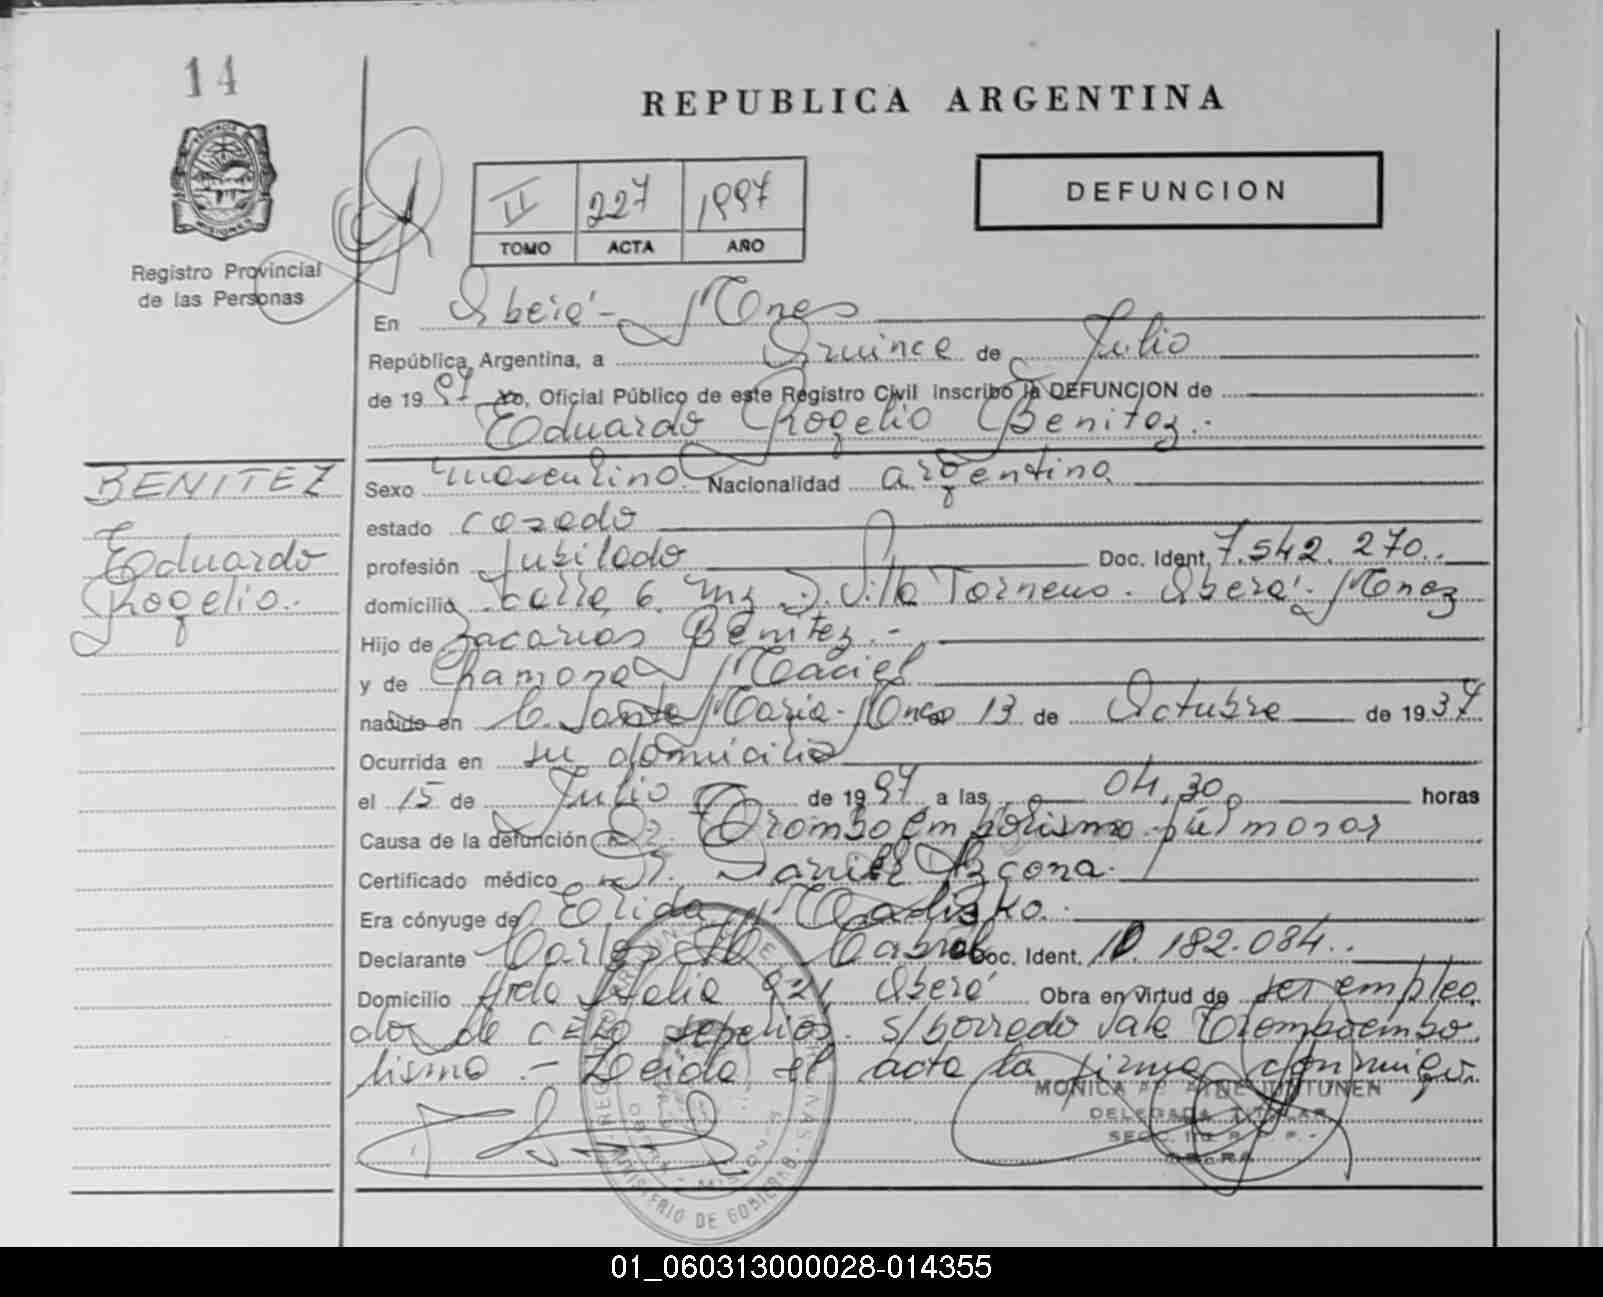 14
REPUBLICA ARGENTINA
DEFUNCION
II 227 1997
TOMO ACTA AÑO
Registro Provincial
de las Personas
En Oberá - Mnes
República Argentina, a Quince de Julio
de 19 97 yo, Oficial Público de este Registro Civil inscribo la DEFUNCION de
Eduardo Rogelio Benitez.-
BENITEZ
Eduardo
Rogelio.
Sexo masculino. Nacionalidad argentina
estado casado
profesión Jubilado Doc. Ident. 7.542.270..
domicilio calle 6. Mz D. Villa Torneus. Oberá. Mones
Hijo de Zacarias Benitez.-
y de Ramona Maciel
nacido en C. Santa Maria- Mnes 13 de Octubre de 19 37
Ocurrida en su domicilio
el 15 de Julio de 19 97 a las 04,30 horas
Causa de la defunción Tromboembolismo pulmonar
Certificado médico Dr. Daniel Azcona.
Era cónyuge de Elida
Declarante Carlos Cabral Doc. Ident. 10.182.084..
Domicilio Avda Italia 921 Oberá Obra en virtud de ser emplea
do de sepelios. s/borrado Vale Tromboembo
lismo.- Leida el acta la firma conmigo.
MONICA
DELEGADA TITULAR
SECC. R. P. P.-
OBERA
MINISTERIO DE GOBIERNO
01_060313000028-014355